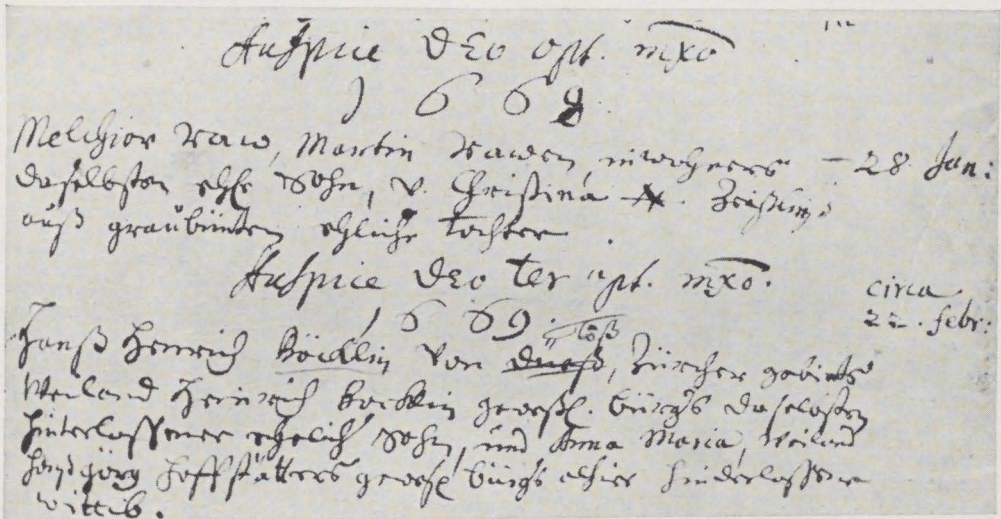 Auspice Deo opt. mxo
1668
Melchior Raw, Martin Rawen, inwohners – 28 Jan:
daselbsten ehl. Sohn, v. Christina
auß graubünten ehliche tochter.
Auspice Deo ter opt. mxo.
circa
1669.
22. febr:
töß
Hanß Henrich Böcklin von, Zürcher gebiets
Weiland Heinrich Bocklin geweßt. burgers daselbsten
hinterlassener ehelich Sohn, und Anna Maria, weiland
Hanß Jörg Hoffstätters geweßt burgers alhier hinderlassene
wittib.